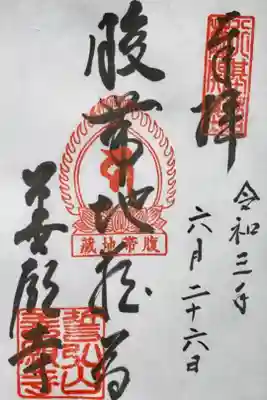 奉拝
令和三年
六月二十六日
腹帯地蔵尊
腹帯地蔵
善願寺